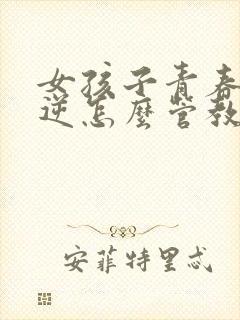 女孩子青春
逆怎麼管教
安菲特里忒